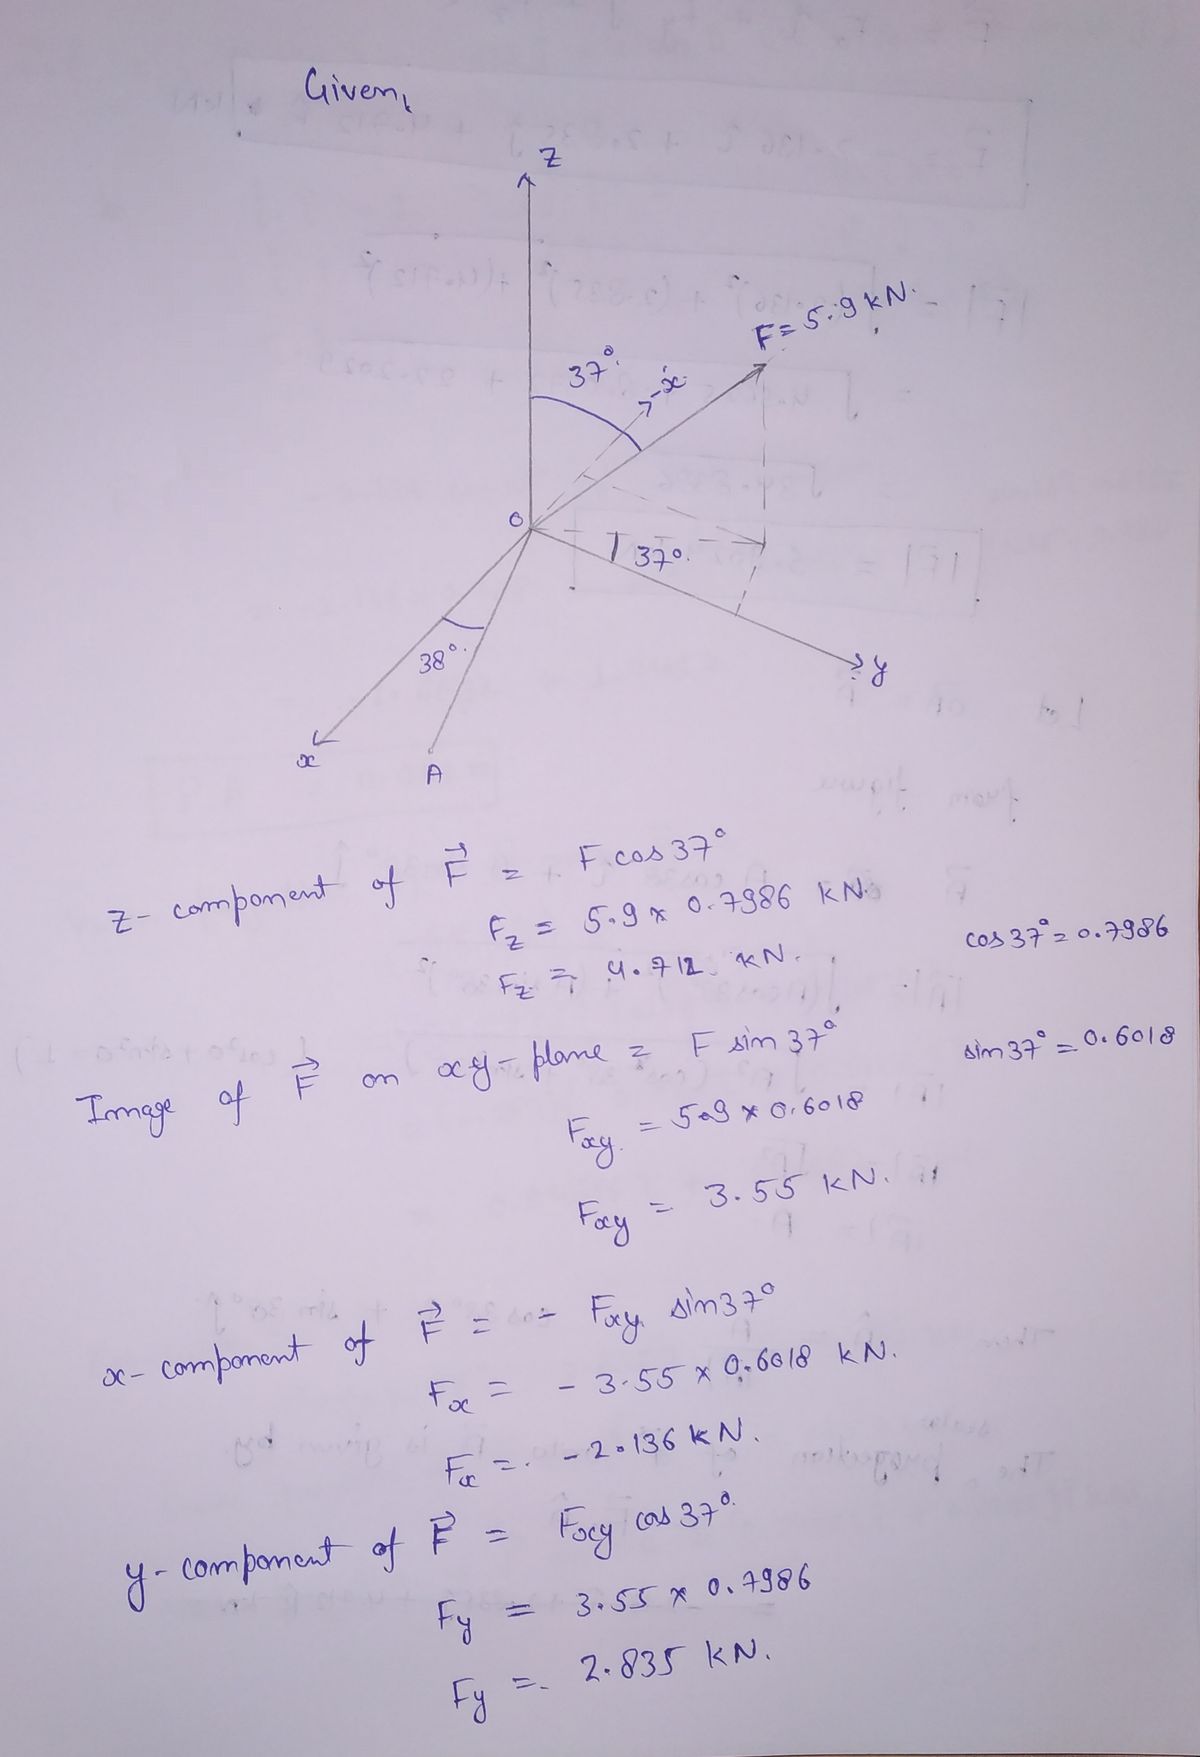 Given,
Z
F = 5.9 kN.
37°.
-x
O
37°.
38°.
y
x
A
z- component of F⃗ = F cos 37°
F_z = 5.9 × 0.7986 kN.
cos 37° = 0.7986
F_z = 4.712 kN.
Image of F⃗ on xy-plane = F sin 37°
sin 37° = 0.6018
F_xy = 5.9 × 0.6018
F_xy = 3.55 kN.
x- component of F⃗ = - F_xy sin 37°
F_x = - 3.55 × 0.6018 kN.
F_x = - 2.136 kN.
y- component of F⃗ = F_xy cos 37°.
F_y = 3.55 × 0.7986
F_y = 2.835 kN.